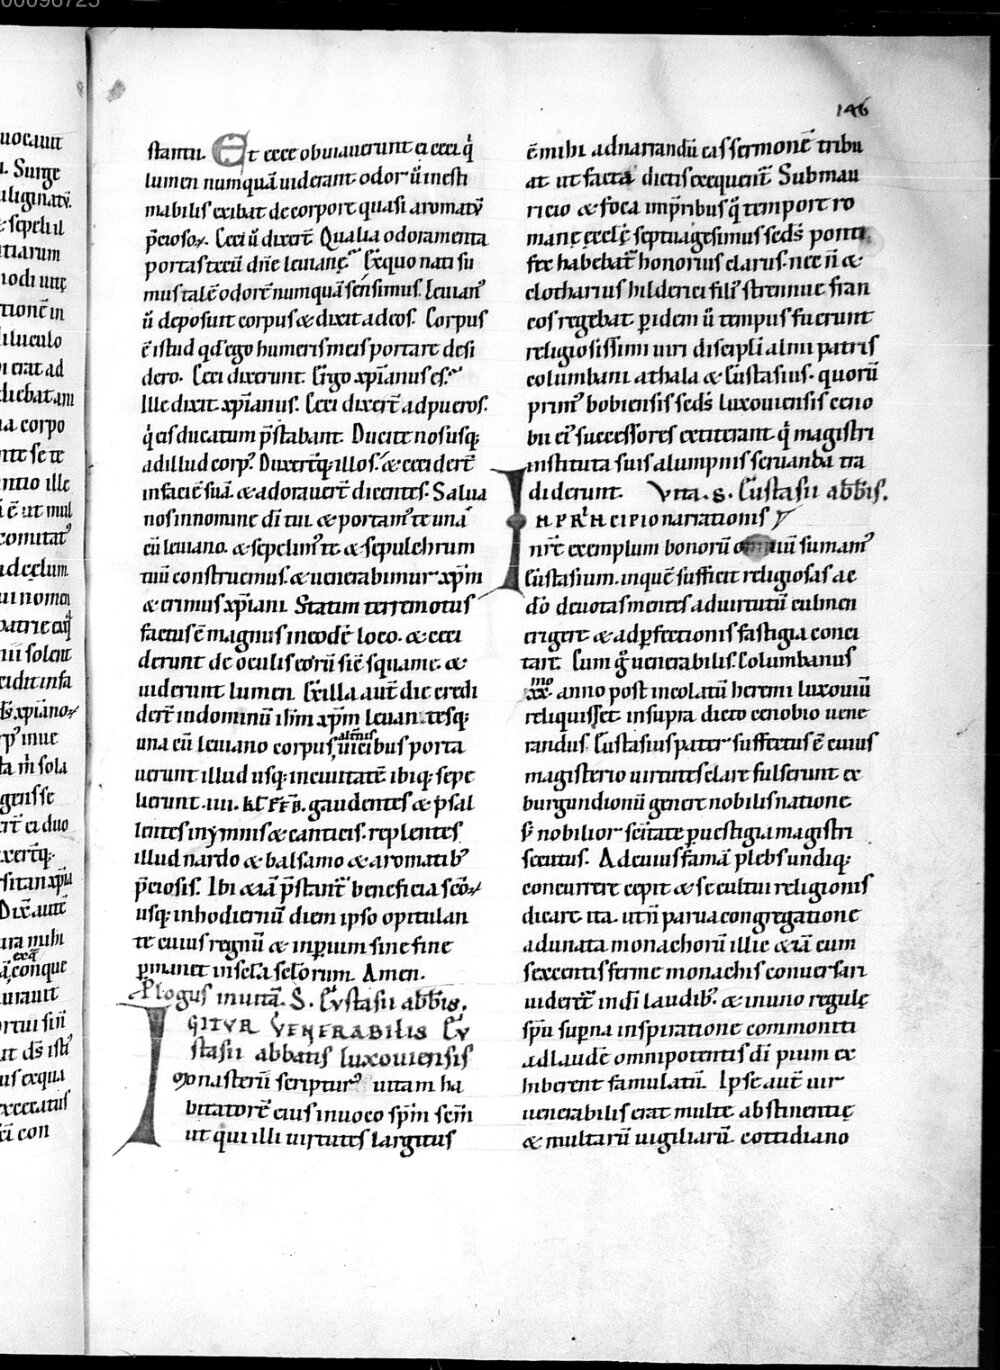 00098725
146
uocauit
Surge
uliginatũ.
sepeliil
tiarum
modi uitę
tionẽ in
diluculo
erat ad
diebatam
corpo
se te
ntio ille
ẽ ut mul
comitat᷒
declum
ui nomen
patrie
solent
cidit infa
xp̃iano
mue
sola
gensse
ei duo
xertq;
sitan xp̃ia
Dix̃ autẽ
ura mihi
conque
urauit
us exqua
execratus
con
stantii. Et ecce obuiauerunt ei ceci q̇
lumen numquã uiderant odor ũ inesti
mabilis exibat de corpore quasi aromatũ
p̃ciosoꝝ. Ceci ũ dixerĩ. Qualia odoramenta
portas tecũ dñe leuiane. Exquo nati su
mus talẽ odorẽ numquã sensimus. Leuian᷒
ũ deposuit corpus & dixit ad eos. Corpus
ẽ istud qd ego humeris meis portare desi
dero. Ceci dixerunt. Ergo xp̃ianus es.
Ille dixit xp̃ianus. Ceci dixerĩ ad pueros.
q̇ eis ducatum p̃stabant. Ducite nos usq;
ad illud corp᷒. Duxertq; illos. & ceciderĩ
infaciẽ suã. & adorauerĩ dicentes. Salua
nos innomine dĩ tui. & portam᷒ te unã
cũ leuiano. & sepelim᷒ te & sepulchrum
tuũ construemus. & uenerabimur xp̃m
& erimus xp̃iani. Statim terremotus
factus ẽ magnus in eodẽ loco. & ceci
derunt de oculis eorũ sic̃ squame. &
uiderunt lumen. Exilla aut̃ die credi
derĩ indominũ ihm̃ xp̃m leuantesq;
una cũ leuiano corpus almũs uicibus porta
uerunt illud usq; inciuitatẽ ibiq; sepe
lierunt .IIII. KL FEB. gaudentes & psal
lentes inymnis & canticis. replentes
illud nardo & balsamo & aromatib᷒
p̃ciosis. Ibi &iã p̃stant᷒ beneficia scõꝝ
usq; inhodiernũ diem ipso opitulan
te cuius regnũ & inp̃ium sine fine
p̱manet insecla seclorum. Amen.
Plogus in uitã. S. Eustasii abb̃is.
IGITVR VENERABILIS EV
stasii abbatis luxouiensis
monasterii scriptur᷒ uitam ha
bitatorẽ eius inuoco sp̃m scm̃
ut qui illi uirtutes largitus
ẽ mihi ad narrandũ eas sermonẽ tribu
at ut facta dictis exequent᷒. Submau
ricio & foca imp̃ribus q̃ tempore ro
manę ęcclę septuagesimus sed̃s ponti
fex habebat᷒ honorius clarus. nec ñ &
clotharius hilderici fili᷒ strennue fran
cos regebat. p̱ idem ũ tempus fuerunt
religiosissimi uiri discipli almi patris
columbani athala & Eustasius. quorũ
prim᷒ bobiensis sed̃s luxouiensis ceno
bii ei᷒ successores extiterant q̇ magistri
instituta suis alumpnis seruanda tra
diderunt. Vita. S. Eustasii abb̃is.
IN PRINCIPIO narrationis
nr̃e exemplum bonorũ omniũ sumam᷒
Eustasium. inquẽ sufficit religiosas ac
dõ deuotas mentes aduirtutũ culmen
erigere & adp̱fectionis fastigia conci
tare. Cum g̊ uenerabilis Columbanus
xx.mo anno post incolatũ heremi luxouiũ
reliquisset. insupra dicto cenobio uene
randus Eustasius pater suffectus ẽ cuius
magisterio uirtutes clare fulserunt ex
burgundionũ genere nobilis natione
s; nobilior scĩtate p̱ uestigia magistri
secutus. Ad cuius famã plebs undiq;
concurrere cepit & se cultui religionis
dicare. ita. ut ñ parua congregatione
adunata monachorũ illic &iã cum
sexcentis ferme monachis conuersari
uiderẽt᷒ indĩ laudib᷒. & in uno regulę
sp̃u sup̱na inspiratione commoniti
adlaudẽ omnipotentis dĩ pium ex
hiberent famulatũ. Ipse aut̃ uir
uenerabilis erat multe abstinentię
& multarũ uigiliarũ. cottidiano